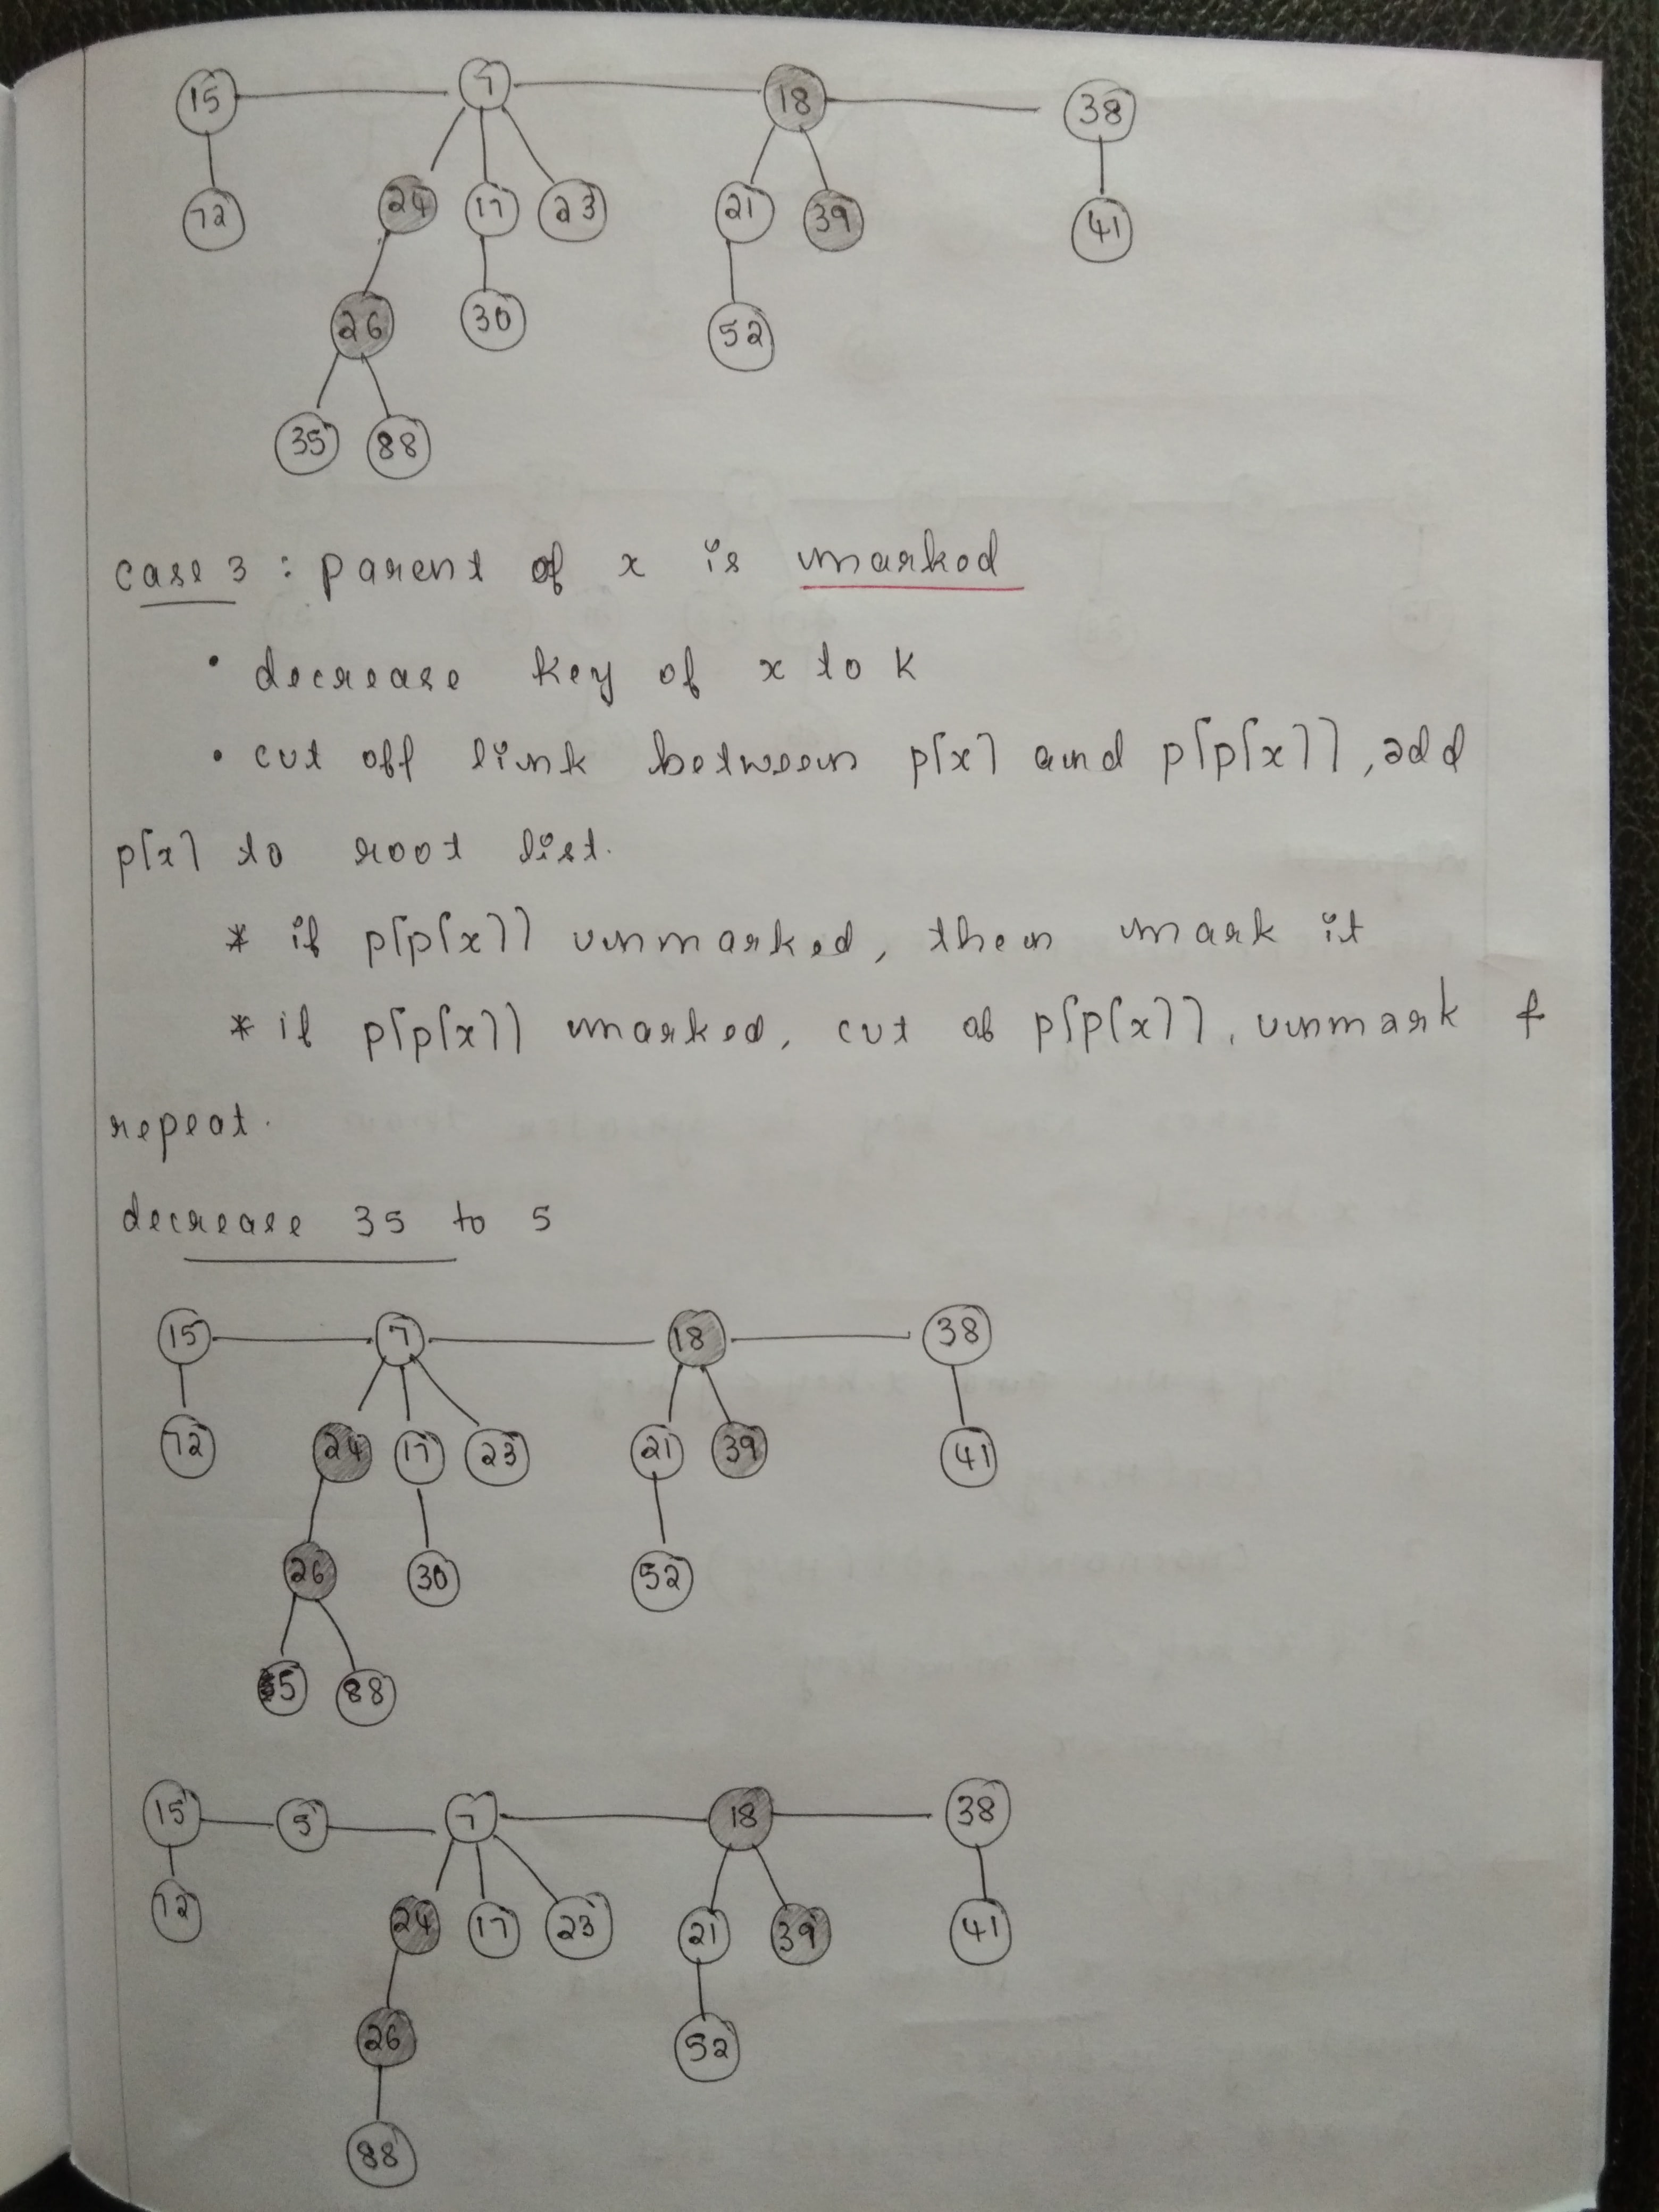 15 7 18 38
72 24 17 23 21 39 41
26 30 52
35 88
case 3 : parent of x is marked
• decrease key of x to k
• cut off link between p[x] and p[p[x]], add
p[x] to root list.
* if p[p[x]] unmarked, then mark it
* if p[p[x]] marked, cut of p[p[x]], unmark &
repeat.
decrease 35 to 5
15 7 18 38
72 24 17 23 21 39 41
26 30 52
5 88
15 5 7 18 38
72 24 17 23 21 39 41
26 52
88